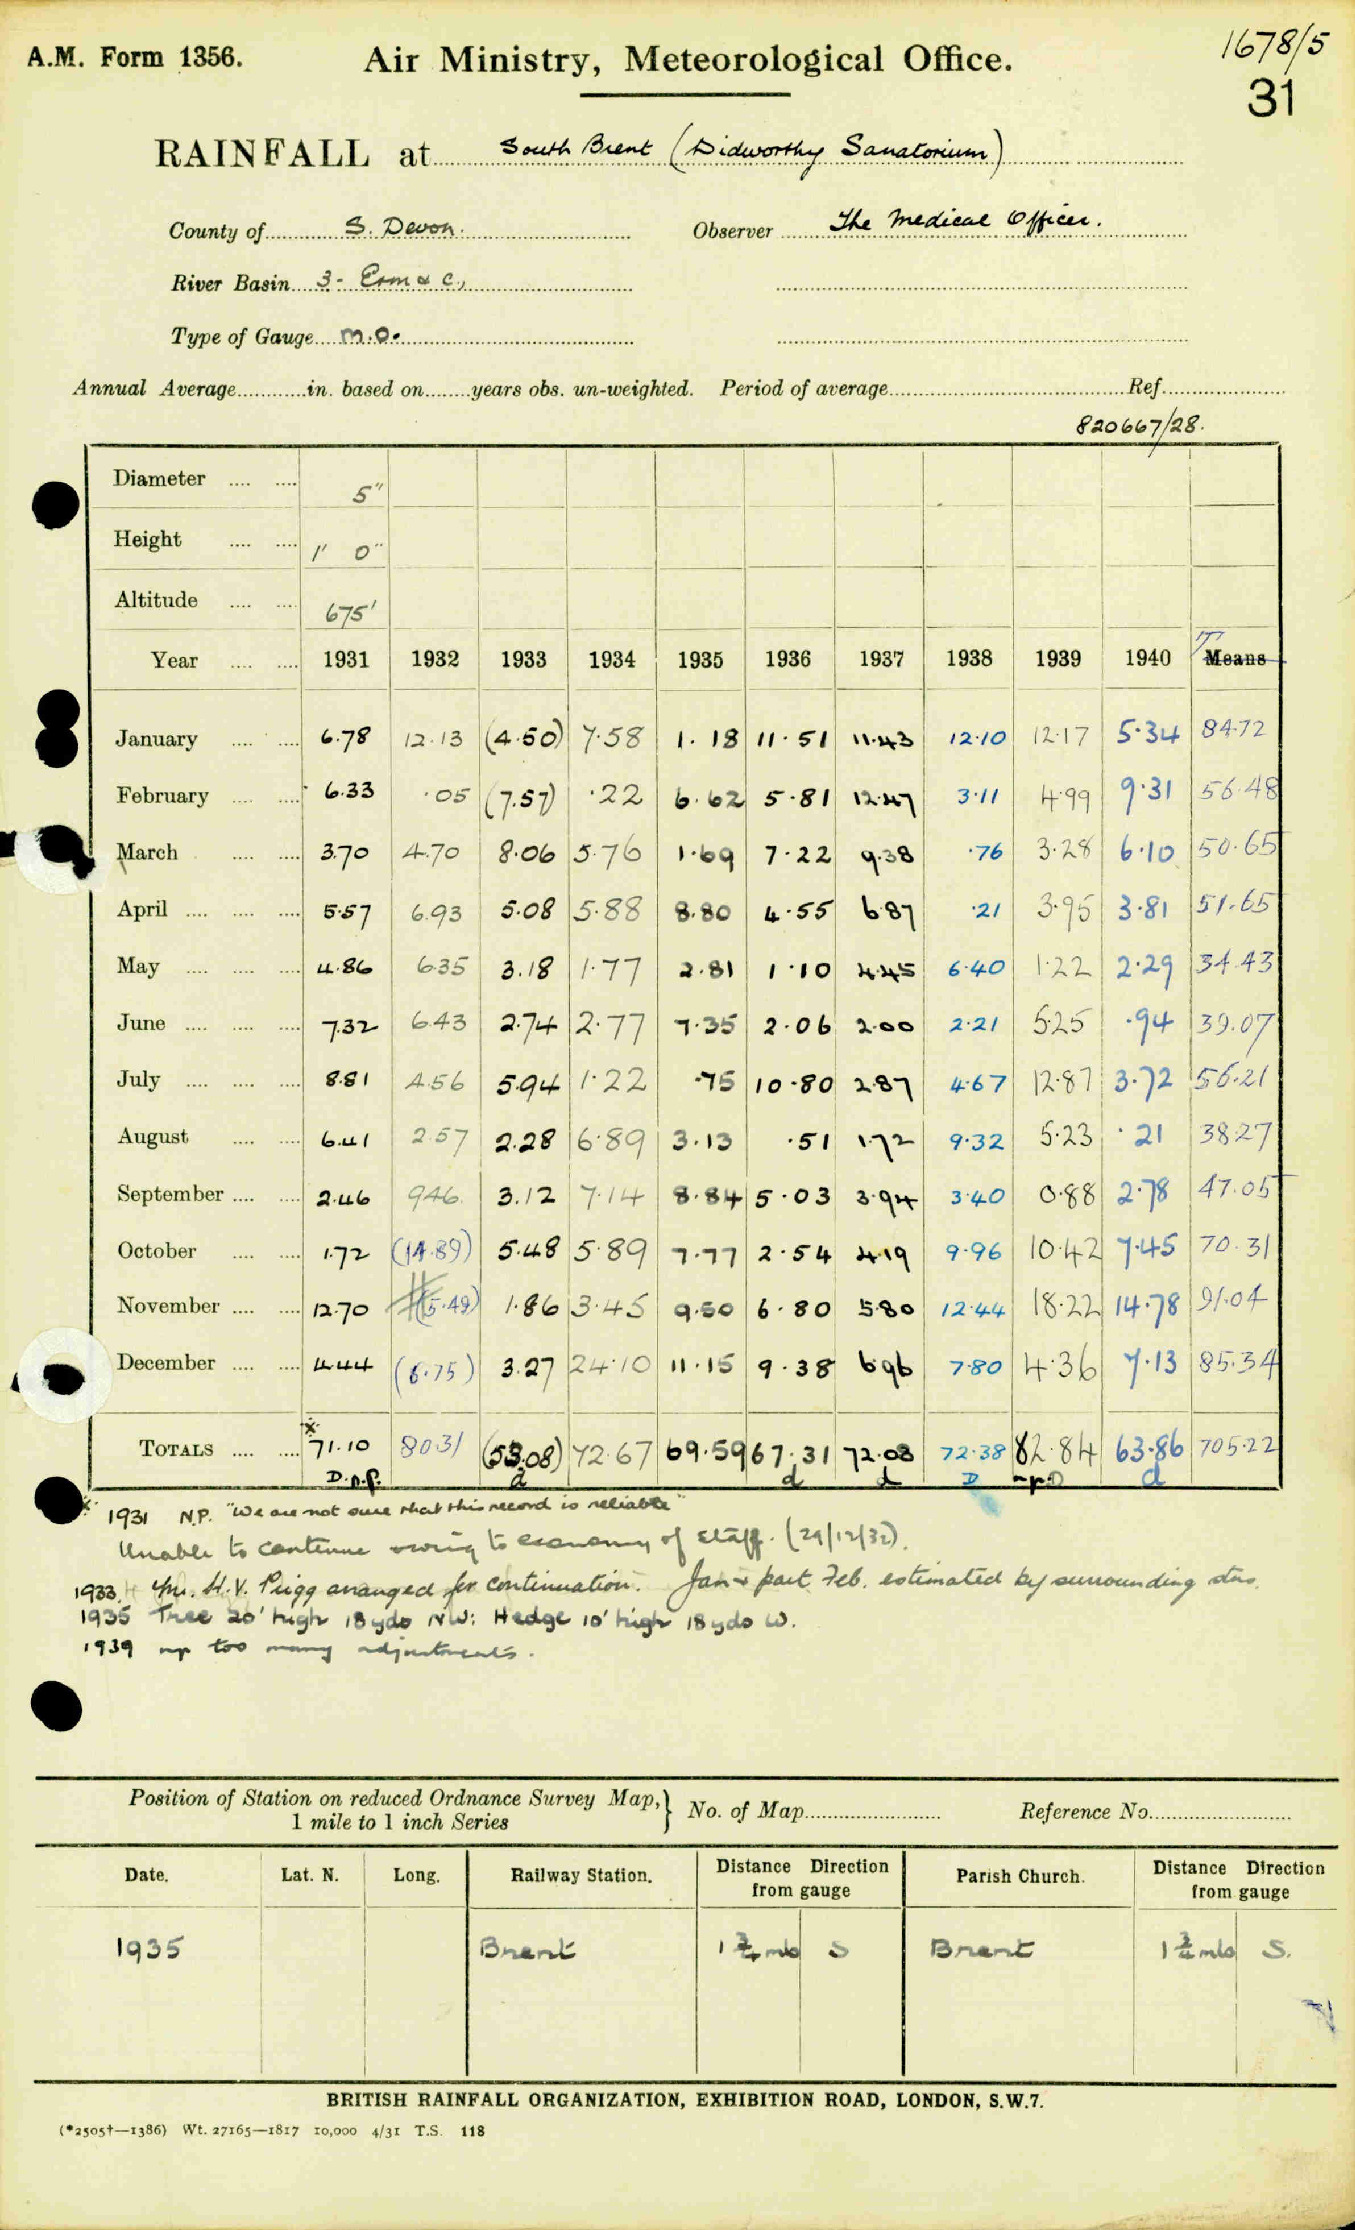 A.M. Form 1356.
Air Ministry, Meteorological Office.
1678/5
31
RAINFALL at South Brent (Didworthy Sanatorium)
County of S. Devon. Observer The Medical Officer.
River Basin 3- Erm & c,
Type of Gauge M.O.
Annual Average in. based on years obs. un-weighted. Period of average Ref.
820667/28.
Diameter 5"
Height 1' 0"
Altitude 675'
Year 1931 1932 1933 1934 1935 1936 1937 1938 1939 1940 T Means
January 6.78 12.13 (4.50) 7.58 1.18 11.51 11.43 12.10 12.17 5.34 84.72
February 6.33 .05 (7.57) .22 6.62 5.81 12.47 3.11 4.99 9.31 56.48
March 3.70 4.70 8.06 5.76 1.69 7.22 9.38 .76 3.28 6.10 50.65
April 5.57 6.93 5.08 5.88 8.80 4.55 6.87 .21 3.95 3.81 51.65
May 4.86 6.35 3.18 1.77 2.81 1.10 4.45 6.40 1.22 2.29 34.43
June 7.32 6.43 2.74 2.77 7.35 2.06 2.00 2.21 5.25 .94 39.07
July 8.81 4.56 5.94 1.22 .75 10.80 2.87 4.67 12.87 3.72 56.21
August 6.41 2.57 2.28 6.89 3.13 .51 1.72 9.32 5.23 .21 38.27
September 2.46 9.46 3.12 7.14 8.84 5.03 3.94 3.40 0.88 2.78 47.05
October 1.72 (14.89) 5.48 5.89 7.77 2.54 4.19 9.96 10.42 7.45 70.31
November 12.70 (5.49) 1.86 3.45 9.50 6.80 5.80 12.44 18.22 14.78 91.04
December 4.44 (6.75) 3.27 24.10 11.15 9.38 6.96 7.80 4.36 7.13 85.34
TOTALS 71.10 80.31 (53.08) 72.67 69.59 67.31 72.08 72.38 82.84 63.86 705.22
D.n.p. d d d D npD d
* 1931 N.P. "We are not sure that this record is reliable"
Unable to continue owing to economy of staff. (29/12/32).
1933 Mr. H.V. Prigg arranged for continuation. Jan & part Feb. estimated by surrounding stns.
1935 Tree 20' high 18 yds NW: Hedge 10' high 18 yds W.
1939 np too many adjustments.
Position of Station on reduced Ordnance Survey Map, 1 mile to 1 inch Series } No. of Map Reference No.
Date. Lat. N. Long. Railway Station. Distance Direction from gauge Parish Church. Distance Direction from gauge
1935 Brent 1 3/4 mls S Brent 1 3/4 mls S.
BRITISH RAINFALL ORGANIZATION, EXHIBITION ROAD, LONDON, S.W.7.
(*2505†—1386) Wt. 27165—1817 10,000 4/31 T.S. 118